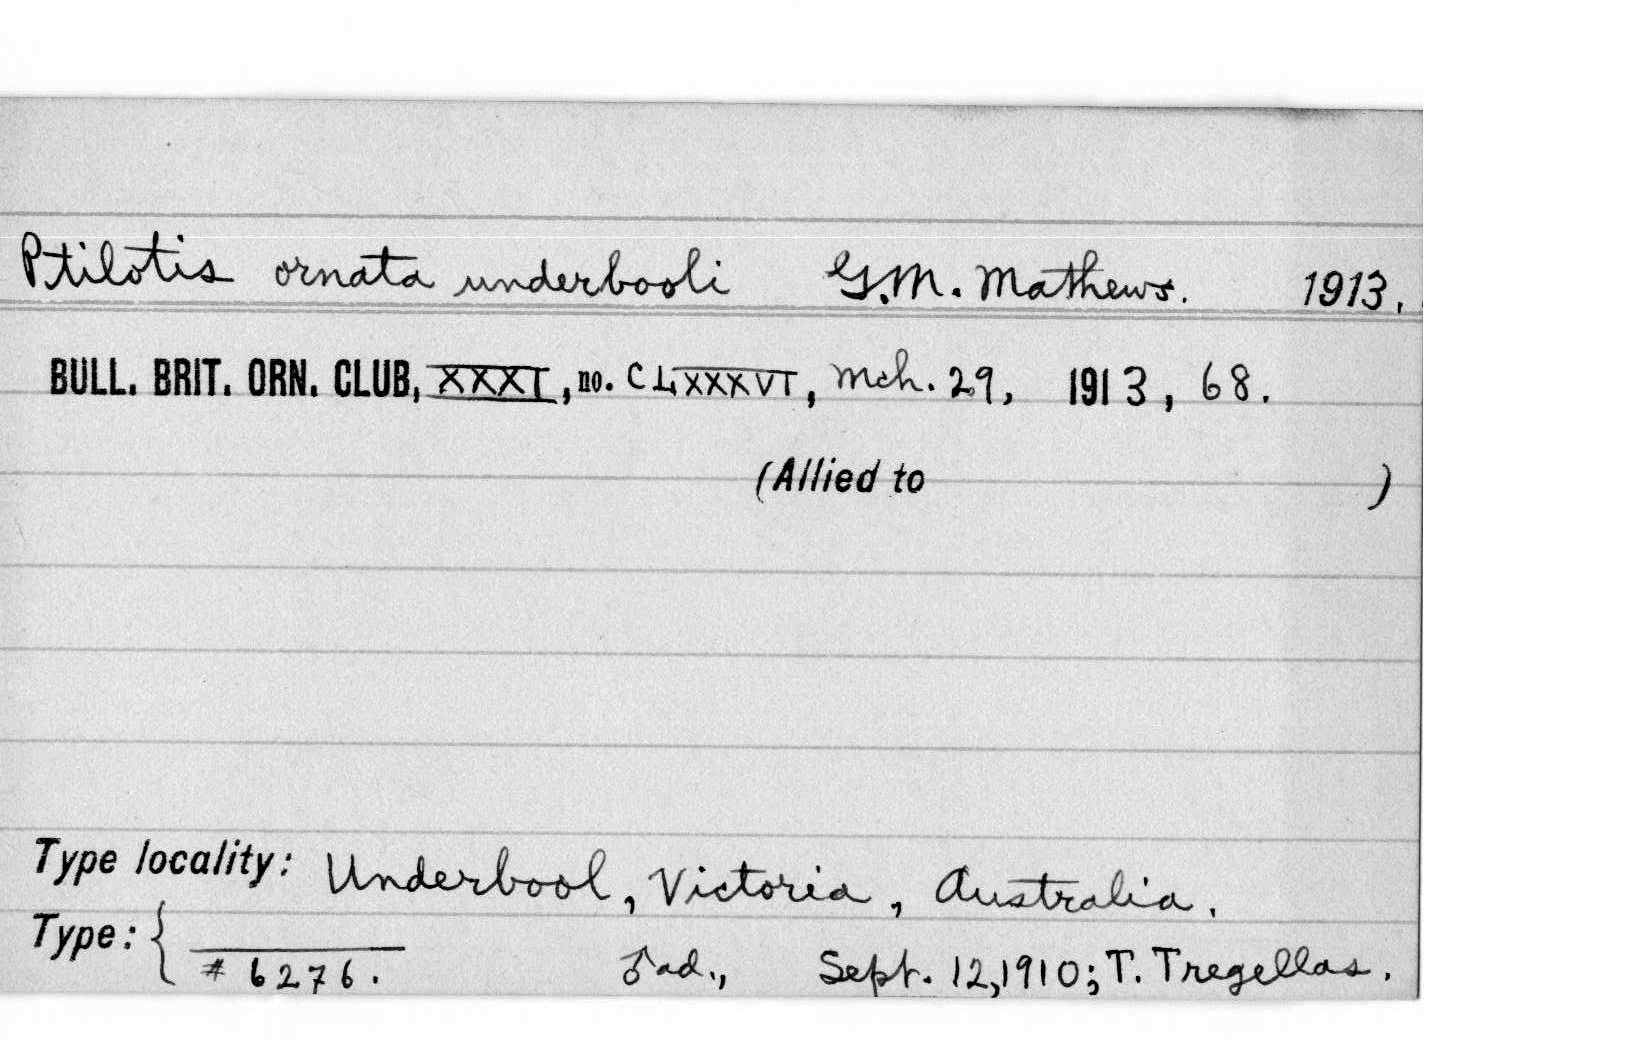 Ptilotis ornata underbooli G.M. Mathews. 1913.
BULL. BRIT. ORN. CLUB, XXXI, no. CLXXXVI, Mch. 29, 1913, 68.
(Allied to )
Type locality: Underbool, Victoria, Australia.
Type: { # 6276. ♂ ad., Sept. 12, 1910; T. Tregellas.